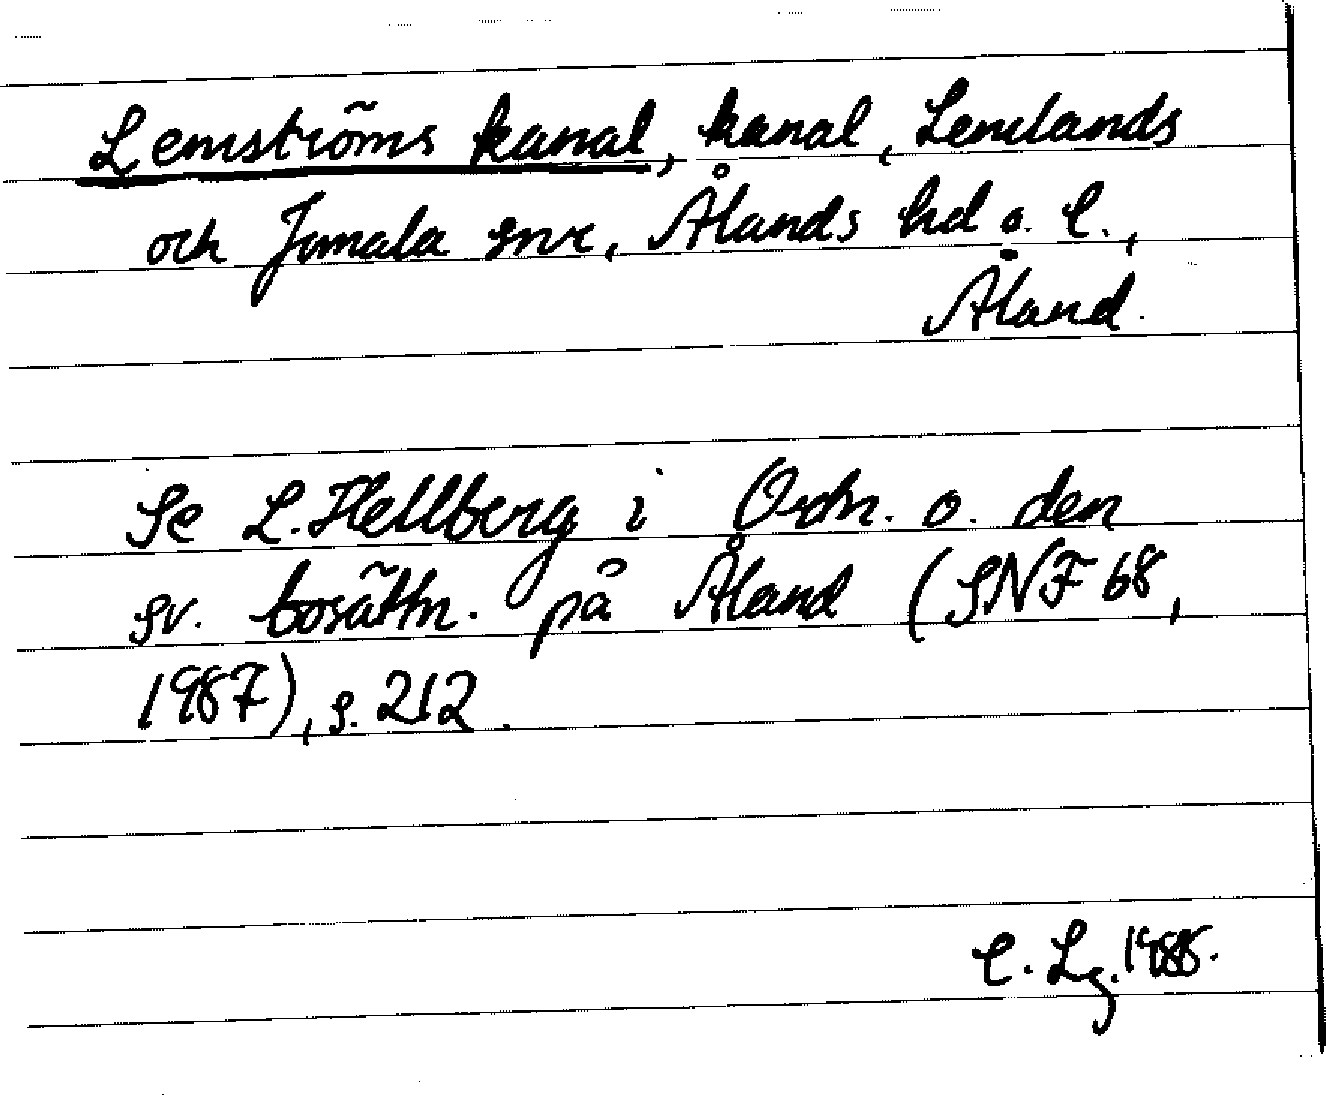 Lemströms kanal, kanal, Lemlands
och Jomala snr, Ålands hd o. l.,
Åland.
Se L. Hellberg i Ordn. o. den
sv. bosättn. på Åland (SNF 68,
1987), s. 212.
C. Lg. 1988.